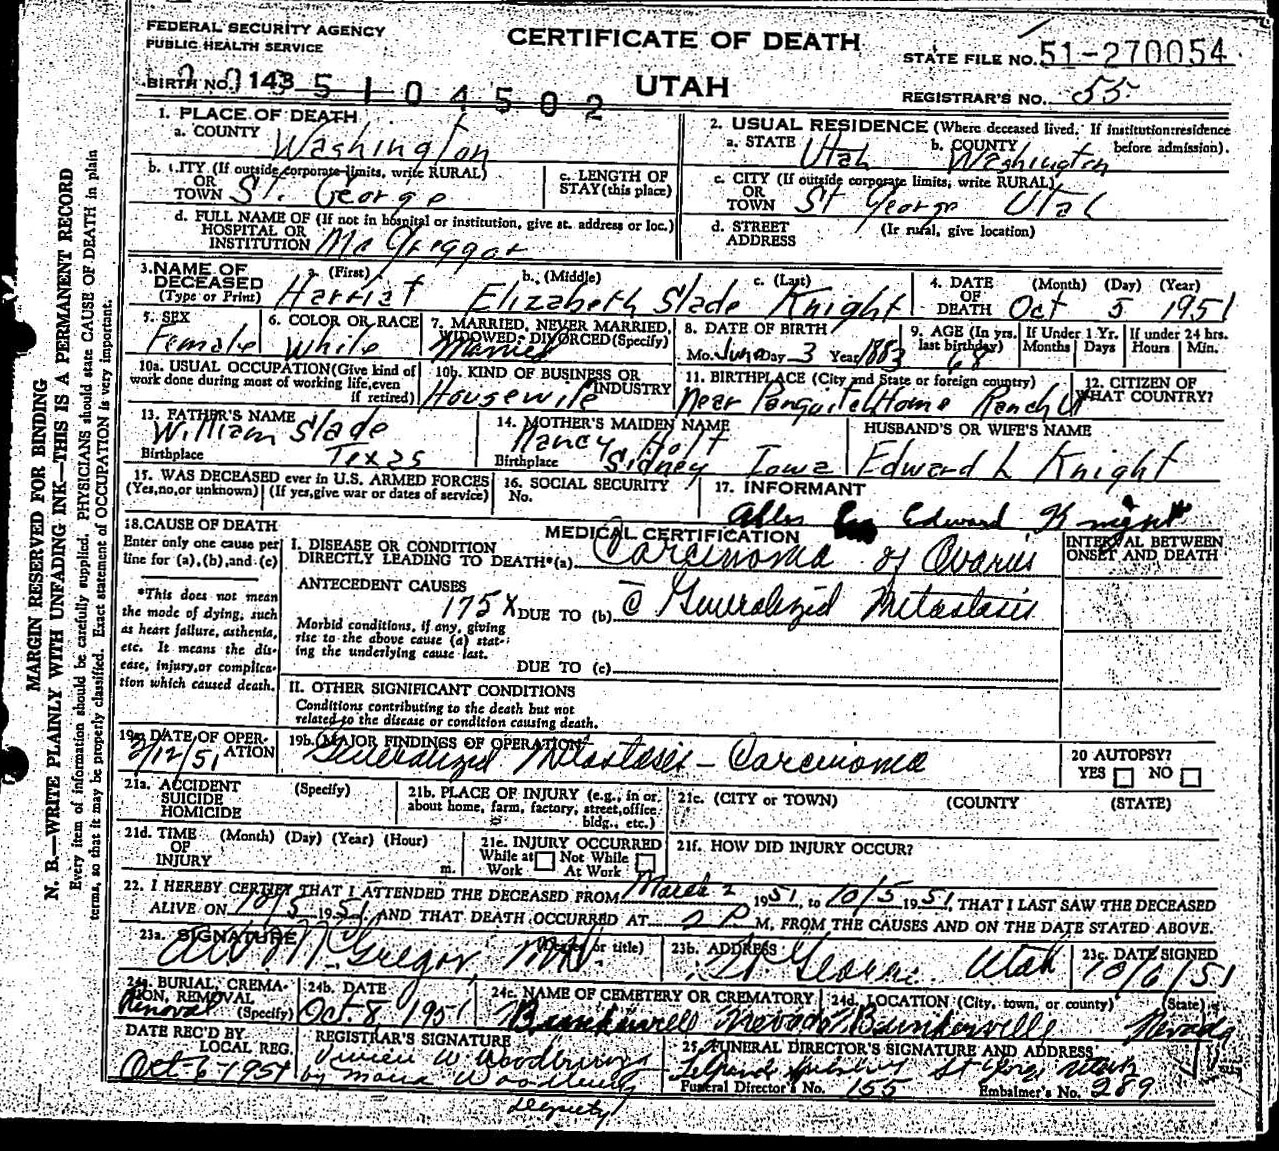 FEDERAL SECURITY AGENCY
PUBLIC HEALTH SERVICE
CERTIFICATE OF DEATH
UTAH
STATE FILE NO. 51-270054
BIRTH NO. 143 5104502
REGISTRAR'S NO. 55
MARGIN RESERVED FOR BINDING
N. B.—WRITE PLAINLY WITH UNFADING INK—THIS IS A PERMANENT RECORD
Every item of information should be carefully supplied. PHYSICIANS should state CAUSE OF DEATH in plain
terms, so that it may be properly classified. Exact statement of OCCUPATION is very important.
1. PLACE OF DEATH
a. COUNTY Washington
b. CITY (If outside corporate limits, write RURAL)
OR
TOWN St. George
c. LENGTH OF
STAY (this place)
d. FULL NAME OF (If not in hospital or institution, give st. address or loc.)
HOSPITAL OR
INSTITUTION McGreggar
2. USUAL RESIDENCE (Where deceased lived. If institution: residence
before admission).
a. STATE Utah b. COUNTY Washington
c. CITY (If outside corporate limits, write RURAL)
OR
TOWN St George Utah
d. STREET (If rural, give location)
ADDRESS
3. NAME OF
DECEASED
(Type or Print)
a. (First) b. (Middle) c. (Last)
Harriet Elizabeth Slade Knight
4. DATE (Month) (Day) (Year)
OF
DEATH Oct 5 1951
5. SEX
Female
6. COLOR OR RACE
White
7. MARRIED, NEVER MARRIED,
WIDOWED, DIVORCED (Specify)
Married
8. DATE OF BIRTH
Mo. June Day 3 Year 1883
9. AGE (In yrs.
last birthday)
68
If Under 1 Yr.
Months Days
If under 24 hrs.
Hours Min.
10a. USUAL OCCUPATION (Give kind of
work done during most of working life, even
if retired)
10b. KIND OF BUSINESS OR
INDUSTRY
Housewife
11. BIRTHPLACE (City and State or foreign country)
Near Panguitch Home Ranch U
12. CITIZEN OF
WHAT COUNTRY?
13. FATHER'S NAME
William Slade
Birthplace Texas
14. MOTHER'S MAIDEN NAME
Nancy Holt
Birthplace Sidney Iowa
HUSBAND'S OR WIFE'S NAME
Edward L Knight
15. WAS DECEASED ever in U.S. ARMED FORCES
(Yes, no, or unknown) (If yes, give war or dates of service)
16. SOCIAL SECURITY
No.
17. INFORMANT
Edward Knight
18. CAUSE OF DEATH
Enter only one cause per
line for (a), (b), and (c)
*This does not mean
the mode of dying, such
as heart failure, asthenia,
etc. It means the dis-
ease, injury, or complica-
tion which caused death.
MEDICAL CERTIFICATION
INTERVAL BETWEEN
ONSET AND DEATH
I. DISEASE OR CONDITION
DIRECTLY LEADING TO DEATH*(a) Carcinoma of Ovaries
ANTECEDENT CAUSES
175X DUE TO (b) c̄ Generalized Metastasis
Morbid conditions, if any, giving
rise to the above cause (a) stat-
ing the underlying cause last.
DUE TO (c)
II. OTHER SIGNIFICANT CONDITIONS
Conditions contributing to the death but not
related to the disease or condition causing death.
19a. DATE OF OPER-
ATION
3/12/51
19b. MAJOR FINDINGS OF OPERATION
Generalized Metastasis - Carcinoma
20 AUTOPSY?
YES NO
21a. ACCIDENT
SUICIDE
HOMICIDE
(Specify)
21b. PLACE OF INJURY (e.g., in or
about home, farm, factory, street, office
bldg., etc.)
21c. (CITY or TOWN) (COUNTY (STATE)
21d. TIME (Month) (Day) (Year) (Hour)
OF
INJURY m.
21e. INJURY OCCURRED
While at Not While
Work At Work
21f. HOW DID INJURY OCCUR?
22. I HEREBY CERTIFY THAT I ATTENDED THE DECEASED FROM March 2 1951, to 10/5 1951, THAT I LAST SAW THE DECEASED
ALIVE ON 10/5 1951, AND THAT DEATH OCCURRED AT 2 P M, FROM THE CAUSES AND ON THE DATE STATED ABOVE.
23a. SIGNATURE (Degree or title)
McGregor M.D.
23b. ADDRESS
St George, Utah
23c. DATE SIGNED
10/6/51
24a. BURIAL, CREMA-
TION, REMOVAL
(Specify)
Removal
24b. DATE
Oct. 8, 1951
24c. NAME OF CEMETERY OR CREMATORY
Bunkerville Nevada
24d. LOCATION (City, town, or county) (State)
Bunkerville Nevada
DATE REC'D BY
LOCAL REG.
Oct-6-1951
REGISTRAR'S SIGNATURE
Vivien W. Woodbury
by Mona Woodbury
deputy
25. FUNERAL DIRECTOR'S SIGNATURE AND ADDRESS
St George Utah
Funeral Director's No. 155 Embalmer's No. 289